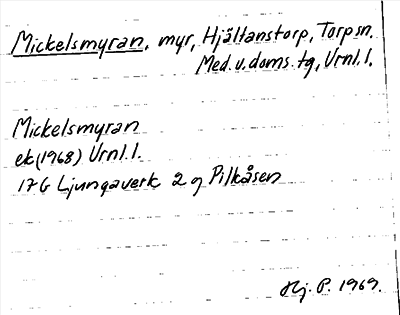 Mickelsmyran, myr, Hjältanstorp, Torp sn.
Med. v. doms. tg, Vrnl. l.
Mickelsmyran
ek (1968) Vrnl. l.
17G Ljungaverk 2 g Pilkåsen
Hj. P. 1969.